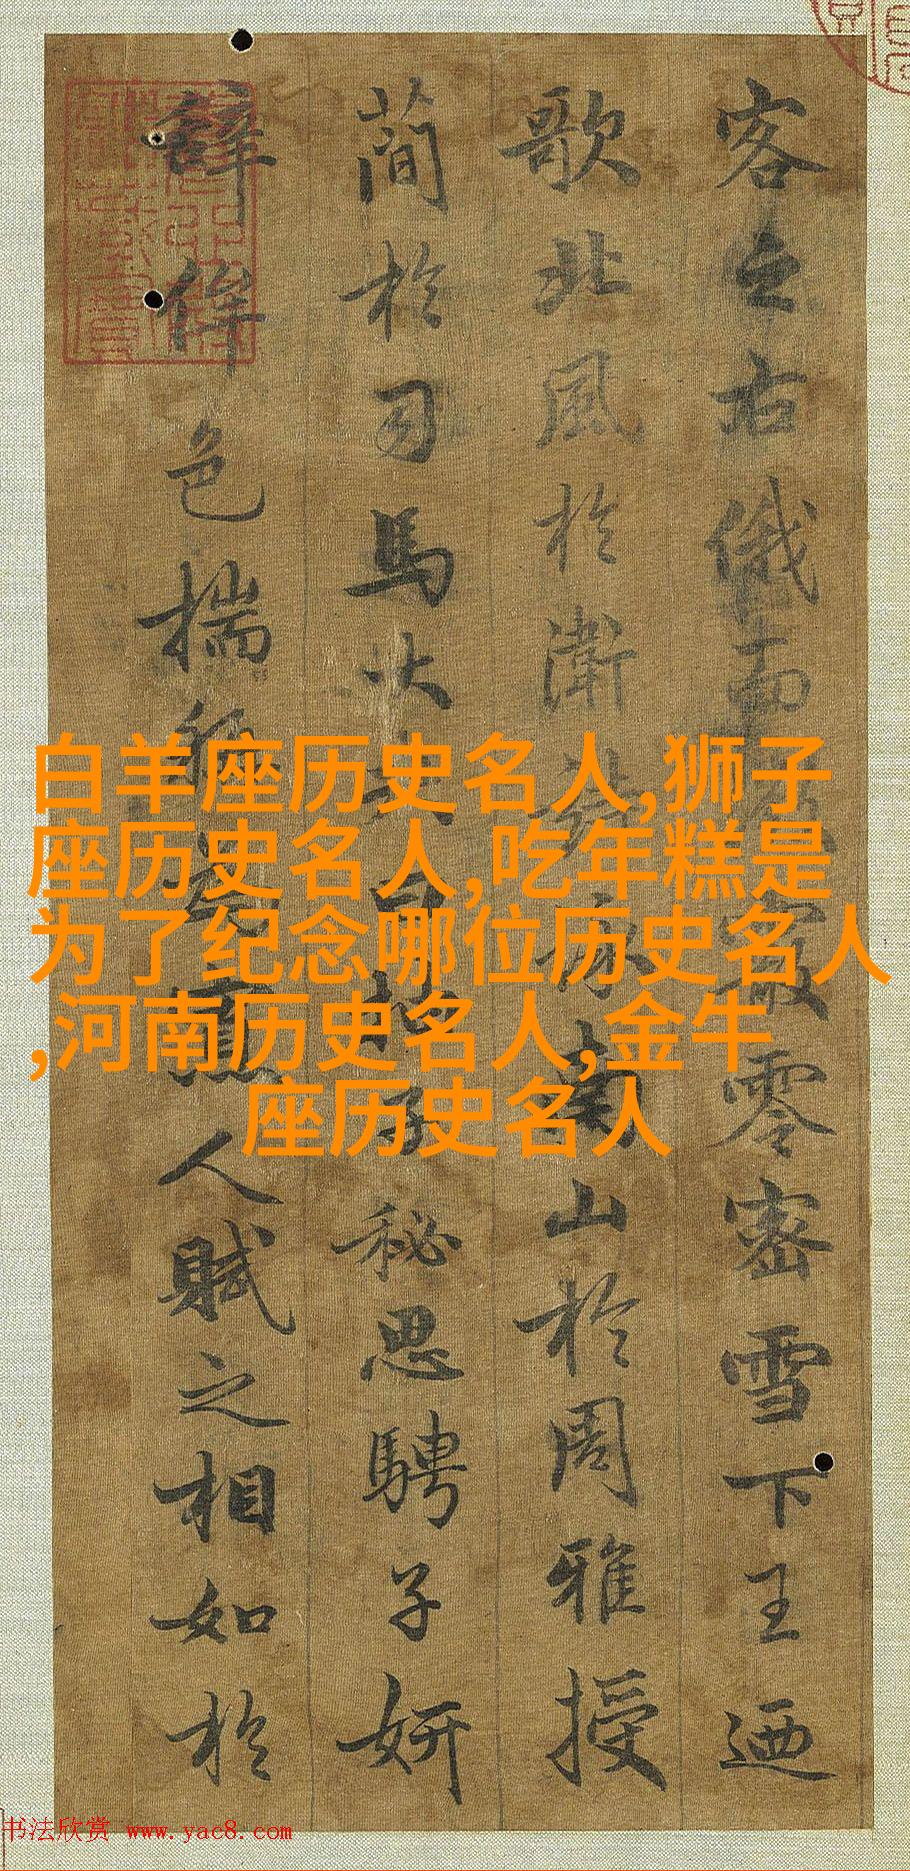 客之右俄而霰零密雪下王迺
歌北風於衛詩詠南山於周雅授
簡於司馬大夫曰抽子秘思騁子妍
辭侔色揣稱為寡人賦之相如於
白羊座历史名人,狮子
座历史名人,吃年糕是
为了纪念哪位历史名人
,河南历史名人,金牛
座历史名人
书法欣赏 www.yac8.com